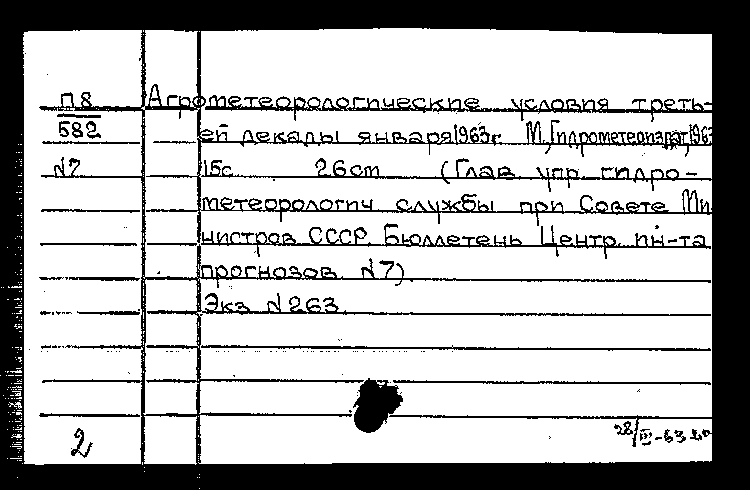 П8 Агрометеорологические условия треть-
582 ей декады января 1963г. М, Гидрометеоиздат, 1963
N7 15с 26cm (Глав. упр. гидро-
метеорологич службы при Совете Ми
нистров СССР. Бюллетень Центр. ин-та
прогнозов. N7)
Экз N263.
2 28/III-63